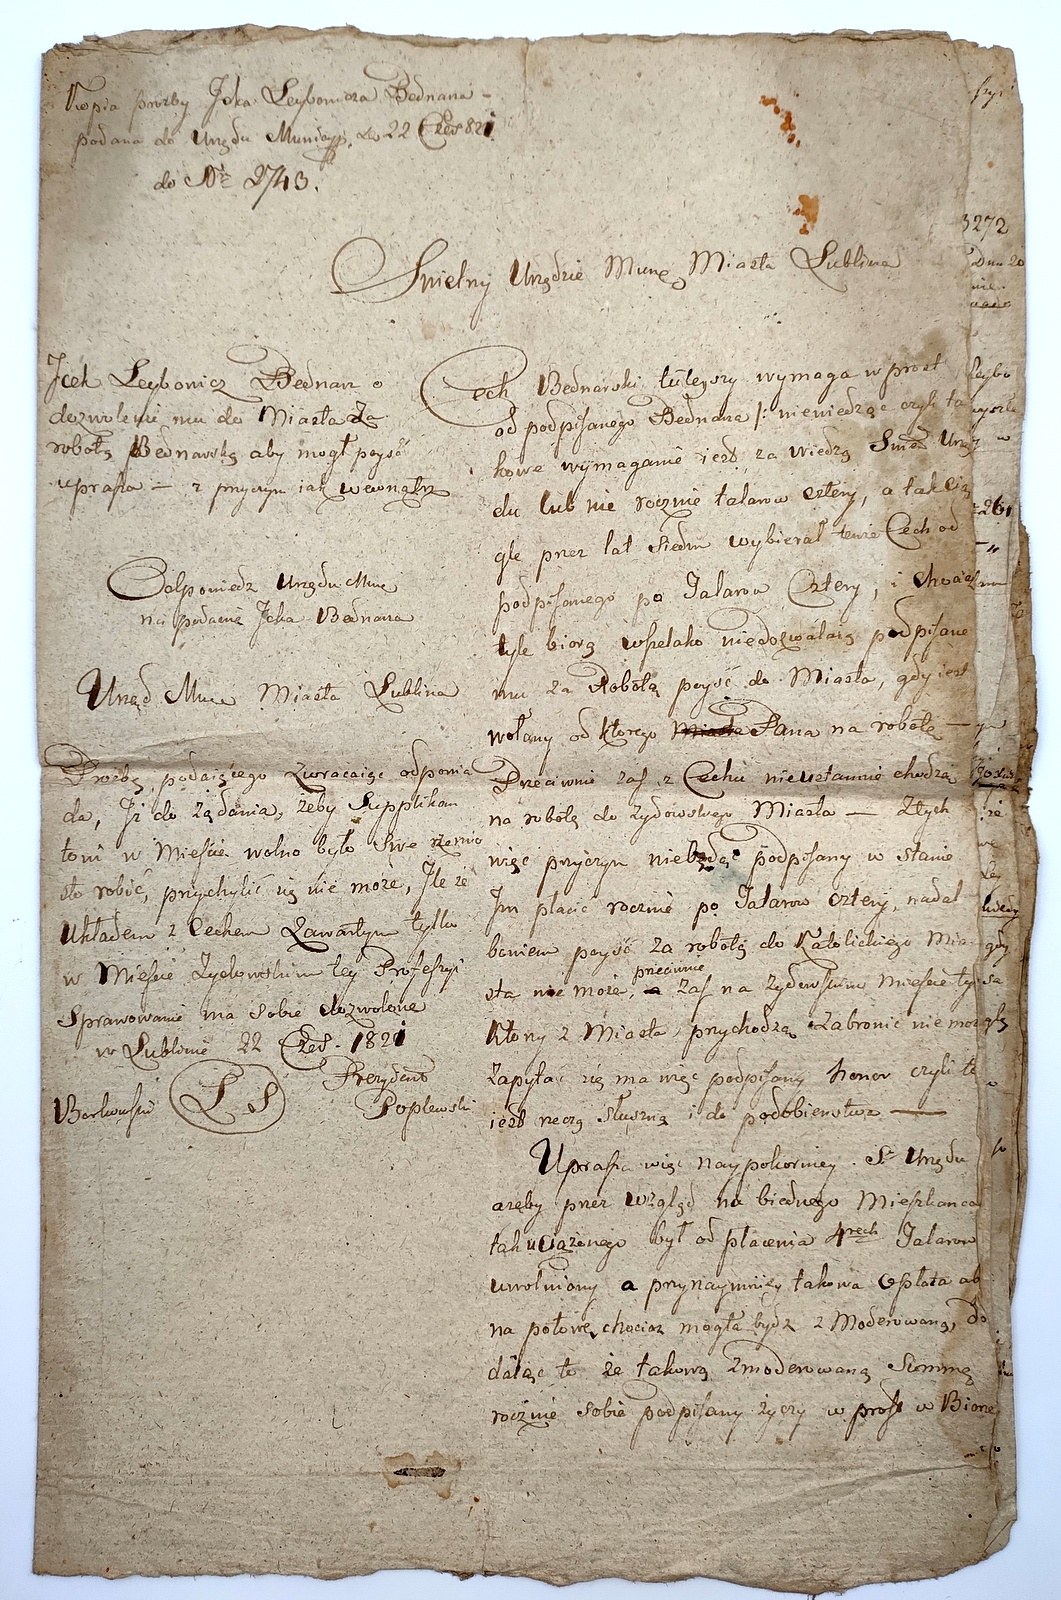 Kopia prozby Jcka Leybowicza Bednarza
podana do Urzędu Municyp. do 22 Czer. 821.
do Nr 2743.
Swietny Urzędzie Munc Miasta Lublina
Jcek Leybowicz Bednarz o
dozwolenie mu do Miasta za
robotą Bednarską aby mogł pojść
uprasza — z przyczyn jak wewnątrz
Odpowiedz Urzędu Munc
na podanie Jcka Bednarza
Urząd Munc Miasta Lublina
Prozbę podaiącego zwracaiąc odpowia
da, Iż do żądania, żeby Supplikan
towi w Mieście wolno było swe rzemio
sło robić, przychylić się nie może, Ile że
Układem z Cechem zawartym tylko
w Mieście Zydowskim tey Professyi
Sprawowanie ma sobie dozwolone
w Lublinie 22 Czer. 1821
Prezydent
Borkowski L S Poplewski
Cech Bednarski tuteyszy wymaga wprost
od podpisanego Bednarza /: niewiedząc czyli ta
kowe wymaganie iest za wiedzą Swie Urzę
du lub nie rocznie talarow cztery, a tak cią
gle przez lat siedm wybierał tenże Cech od
podpisanego po Talarow Cztery, i chociaż
tyle biorą wszelako niedozwalaią podpisane
mu za Robotą pojść do Miasta, gdy iest
wołany od ktorego Miasta Pana na robotę —
Przeciwnie zaś z Cechu nieustannie chodzą
na robotę do żydowskiego Miasta — Z tych
więc przyczyn niebędąc podpisany w stanie
Im płacić rocznie po Talarow cztery, nadal
bowiem pojść za robotą do Katolickiego Mia
sta nie może, przeciwnie zaś na Zydowskim Mieście tym
Ktorzy z Miasta przychodzą Zabronić nie może
Zapytać się ma więc podpisany honor czyli to
iest rzeczą słuszną i do podobienstwa —
Uprasza więc naypokorniey S. Urzędu
ażeby przez wzgląd na biednego Mieszkanca
tak uciążonego był od płacenia 4rech Talarow
uwolniony a przynaymniey takowa opłata ab
na połowę chociaż mogła bydz zModerowaną, do
daiąc to że takową zmoderowaną Summę
rocznie sobie podpisany życzy w prost w Biorze
3272